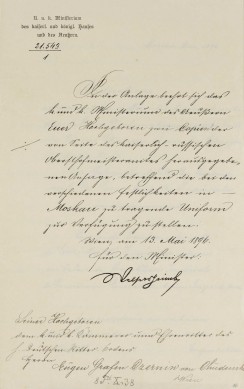 K. u. k. Ministerium
des kaiserl. und königl. Hauses
und des Aeussern.
21.549
1
In der Anlage beehrt sich das
k. und k. Ministerium des Äußern
Euer Hochgeboren zwei Copien der
von Seite des kaiserlich-russischen
Obersthofmeisteramtes herausgegebe-
nen Ansage, betreffend die bei den
verschiedenen Festlichkeiten in
Moskau zu tragende Uniform
zur Verfügung zu stellen.
Wien, am 13. Mai 1896.
Für den Minister:
Seiner Hochgeboren
dem k. und k. Kämmerer und Ehrenritter des
Deutschen Ritter Ordens
Herrn
Eugen Grafen Czernin von Chudenitz